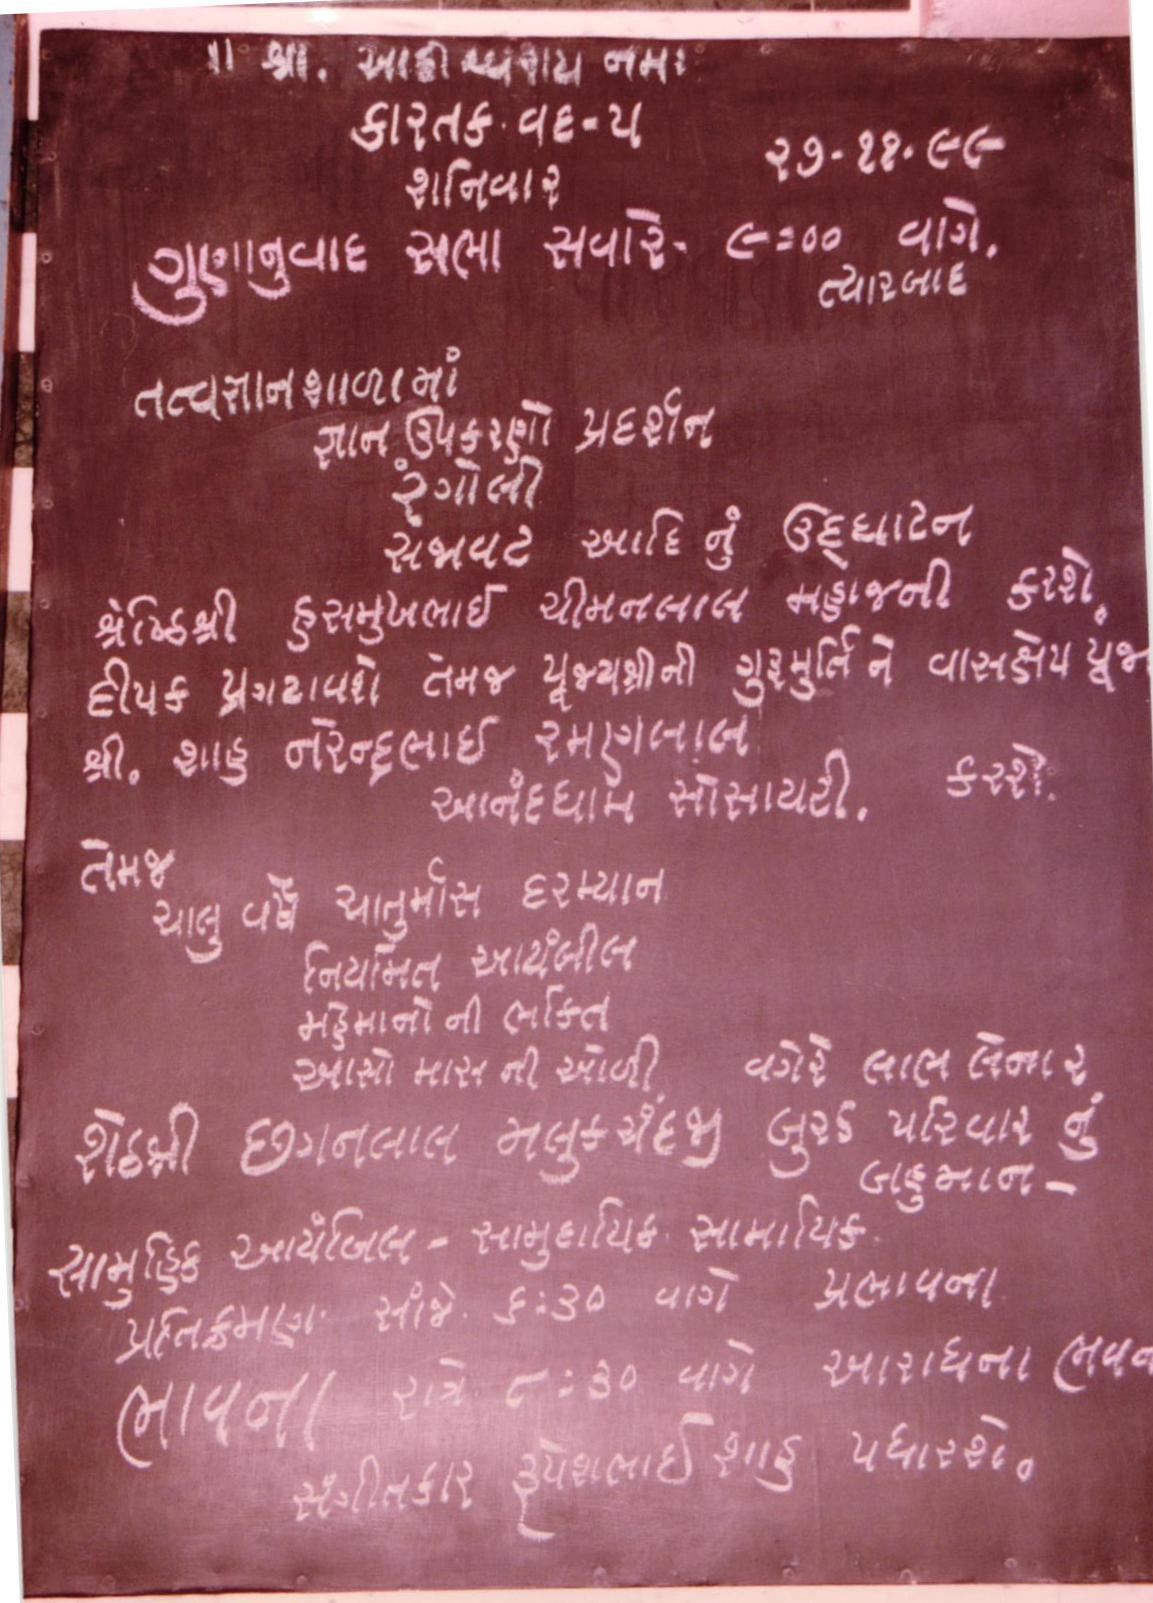 ॥ શ્રી. આદીશ્વરાય નમઃ
કારતક વદ-૫
શનિવાર ૨૭-૧૧-૯૯
ગુણાનુવાદ સભા સવારે- ૯=૦૦ વાગે.
ત્યારબાદ
તત્વજ્ઞાનશાળામાં
જ્ઞાન ઉપકરણો પ્રદર્શન
રંગોલી
સજાવટ આદિ નું ઉદ્ઘાટન
શ્રેષ્ઠિશ્રી હસમુખભાઈ ચીમનલાલ મહાજની કરશે.
દીપક પ્રગટાવશે તેમજ પૂજ્યશ્રીની ગુરૂમુર્તિ ને વાસક્ષેપ પૂજા
શ્રી. શાહ નરેન્દ્રભાઈ રમણલાલ
આનંદધામ સોસાયટી. કરશે.
તેમજ
ચાલુ વર્ષે ચાતુર્માસ દરમ્યાન
નિયમિત આયંબીલ
મહેમાનો ની ભક્તિ
આસો માસ ની ઓળી વગેરે લાભ લેનાર
શેઠશ્રી છગનલાલ મલુકચંદજી બુરડ પરિવાર નું
બહુમાન-
સામુહિક આયંબિલ - સામુદાયિક સામાયિક
પ્રતિક્રમણ સાંજે. ૬:૩૦ વાગે પ્રભાવના
ભાવના રાત્રે ૮:૩૦ વાગે આરાધના ભવન
સંગીતકાર રૂપેશભાઈ શાહ પધારશે.